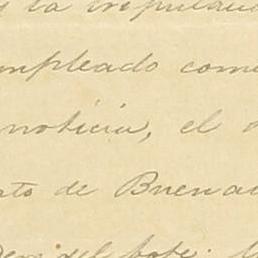 la tripulaci
mpleado com
noticia, el
to de Buena
del